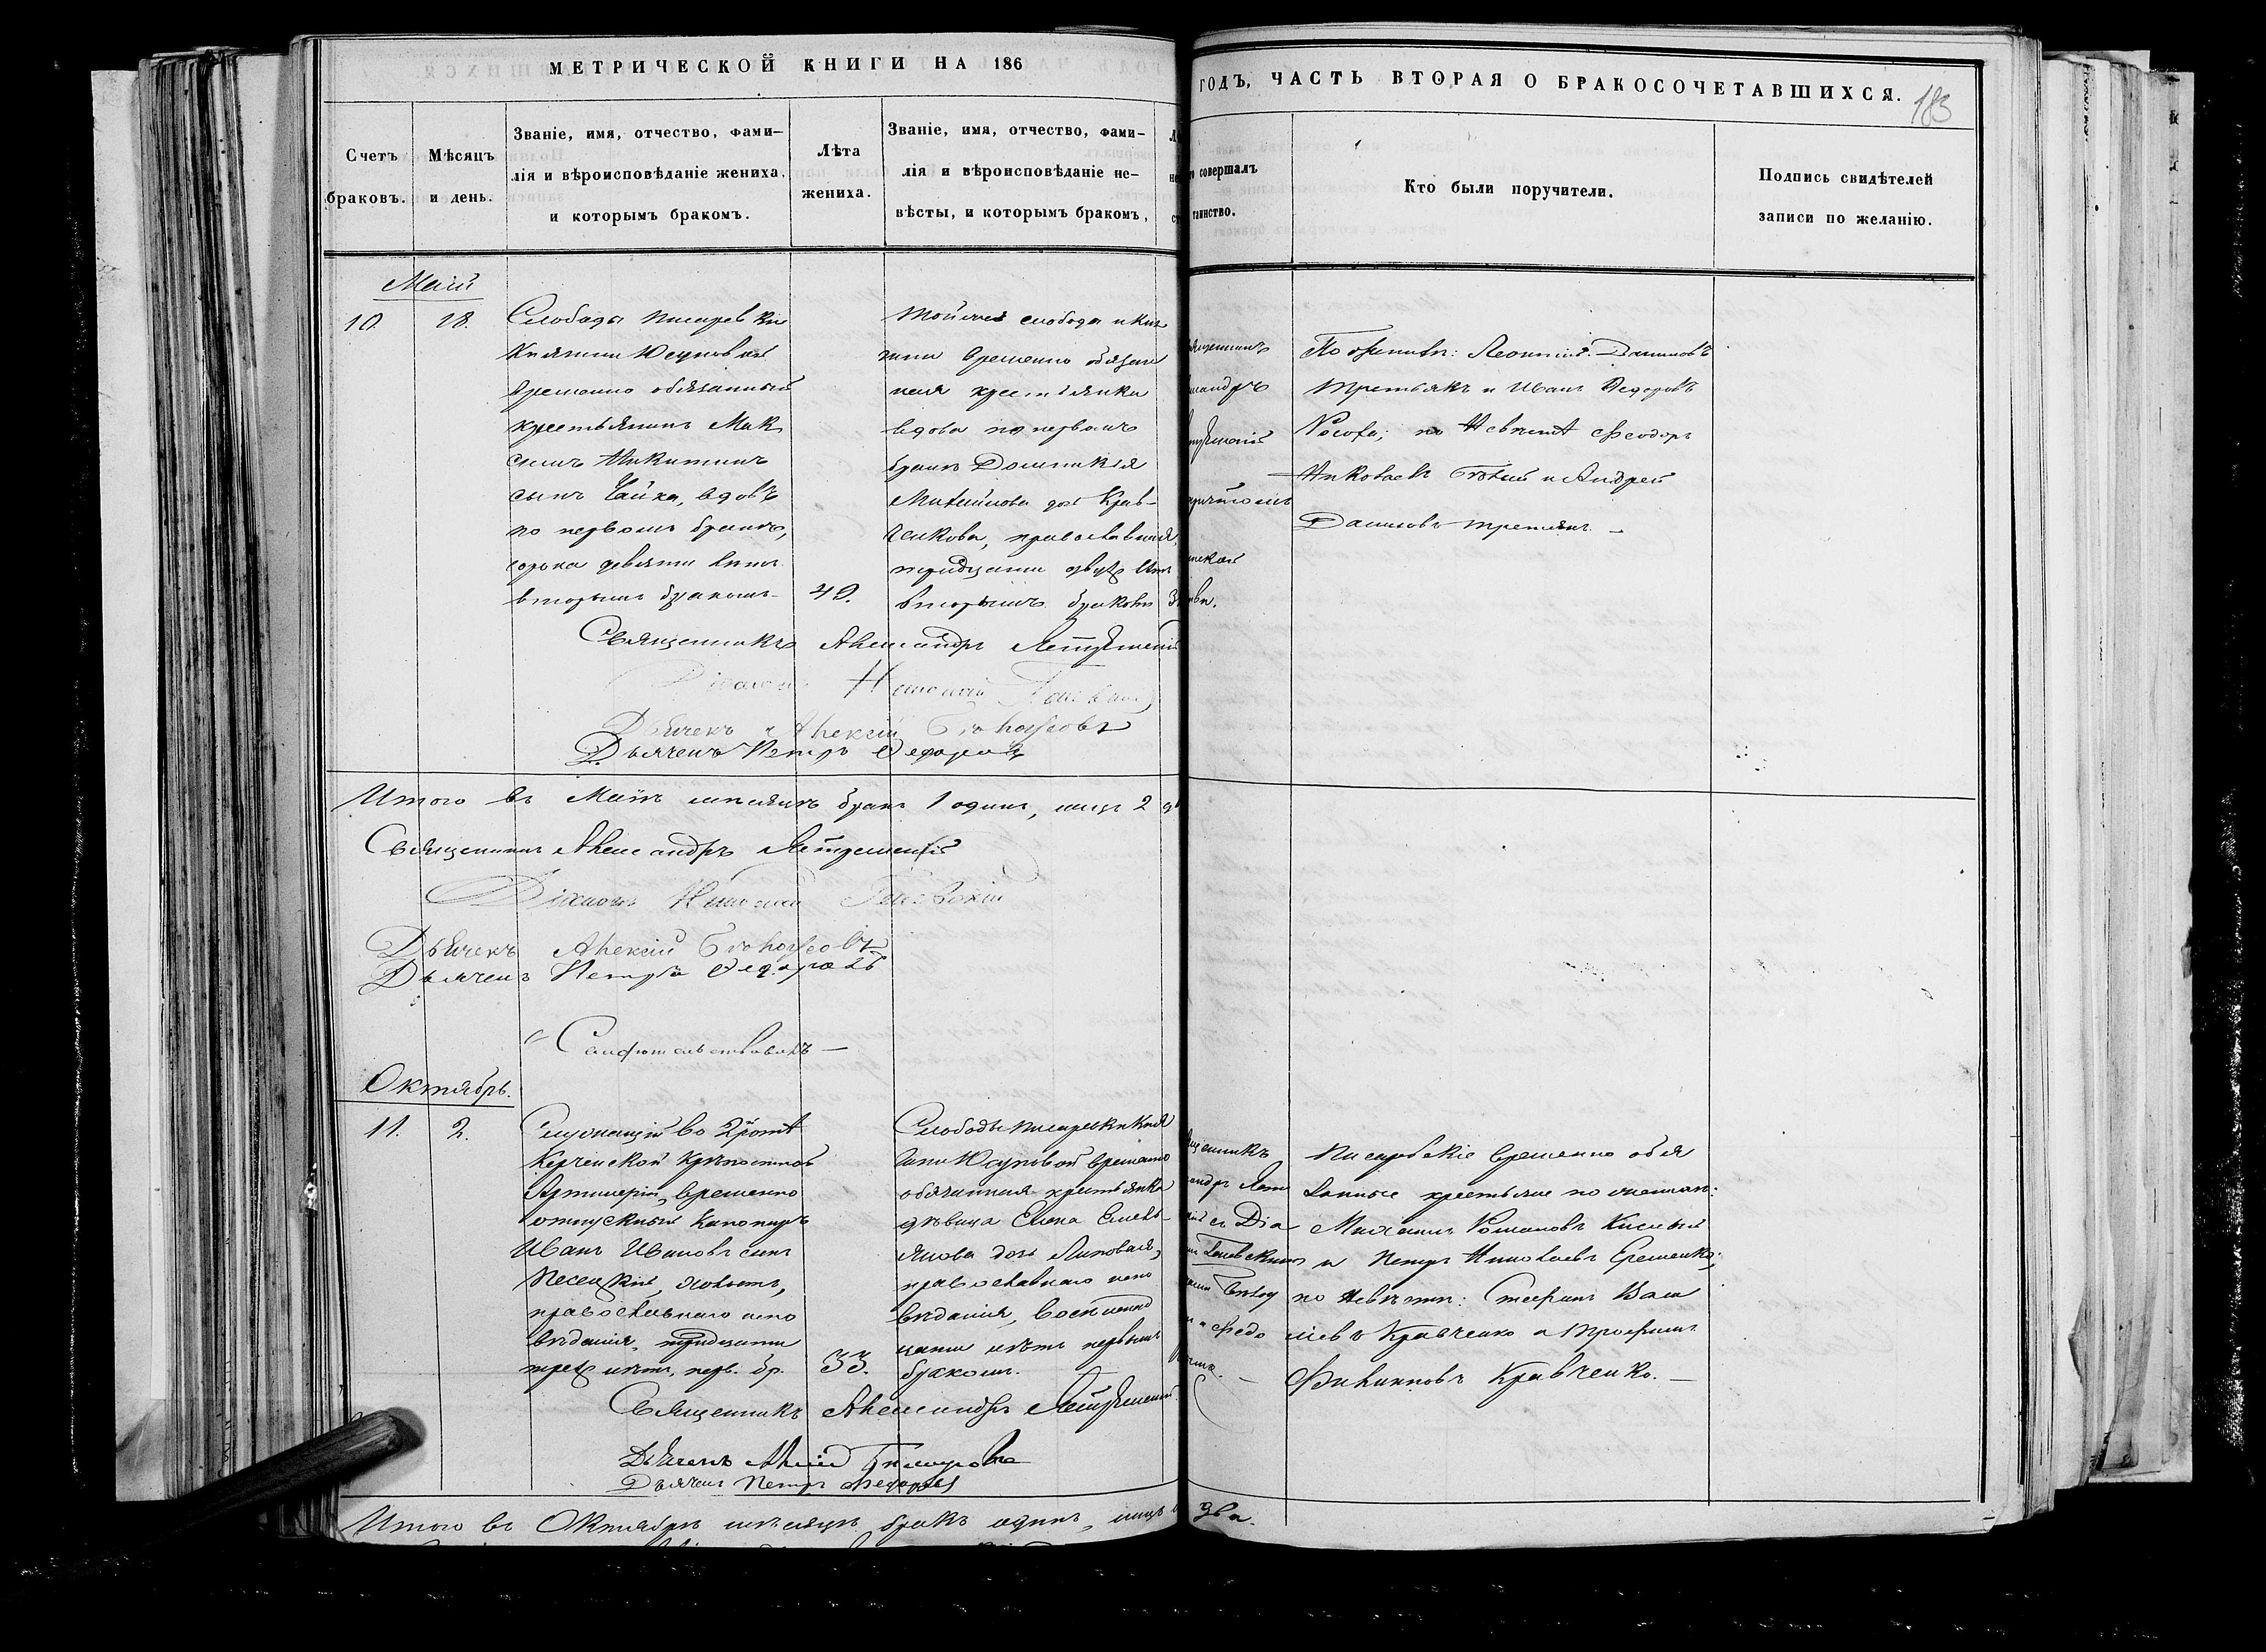 МЕТРИЧЕСКОЙ КНИГИ НА 186
ГОДЪ, ЧАСТЬ ВТОРАЯ О БРАКОСОЧЕТАВШИХСЯ.
183
Счетъ браковъ.
Мѣсяцъ и день.
Званіе, имя, отчество, фами-
лія и вѣроисповѣданіе жениха,
и которымъ бракомъ.
Лѣта жениха.
Званіе, имя, отчество, фами-
лія и вѣроисповѣданіе не-
вѣсты, и которымъ бракомъ,
совершалъ
таинство.
Кто были поручители.
Подпись свидѣтелей
записи по желанію.
Маій
10.
18.
Слободы Писаревки
Княгини Юсуповой
временно обязанный
крестьянинъ Мак
симъ Никитинъ
сынъ Чайка, вдовъ
по первомъ бракѣ,
сорока девяти лѣтъ
вторымъ бракомъ
49.
Той же слободы и Кня
гини временно обязан
ная крестьянка
вдова по первомъ
бракѣ Домникія
Михайлова дочь Крав-
ченкова, православная,
тридцати двухъ лѣтъ
вторымъ бракомъ
По женихѣ: Леонтій Даниловъ
Третьякъ и Иванъ Федоровъ
по невѣстѣ Феодоръ
Николаевъ Бѣлый и Андрей
Даниловъ Третьякъ.
Священникъ Александръ
Діаконъ Николай
Дьячекъ Алексій
Дьячекъ Петръ Федоровъ
Итого въ Маѣ мѣсяцѣ бракъ 1 одинъ, лицъ 2
Священникъ Александръ
Діаконъ Николай
Дьячекъ Алексій
Дьячекъ Петръ Федоровъ
Октябрь.
11.
2.
Служащій во 2й ротѣ
Керченской крѣпостной
Артилеріи, временно
отпускный Канониръ
Иванъ Ивановъ сынъ
холостъ,
православнаго испо
вѣданія, тридцати
трехъ лѣтъ, перв. бр.
33.
Слободы Писаревки Кня
гини Юсуповой временно
обязанная крестьянка
дѣвица Елена Емель-
янова дочь Липовая,
православнаго испо
вѣданія, восемнад
цати лѣтъ первымъ
бракомъ.
Писаревскіе временно обя
занные крестьяне по женихѣ:
Михаилъ Романовъ
и Петръ Николаевъ Еременко;
по невѣстѣ: Стефанъ Васи
льевъ Кравченко и Трофимъ
Филиповъ Кравченко.
Священникъ Александръ
Дьячекъ Алексій
Дьячекъ Петръ Федоровъ
Итого въ Октябрѣ мѣсяцѣ бракъ одинъ, лицъ два.